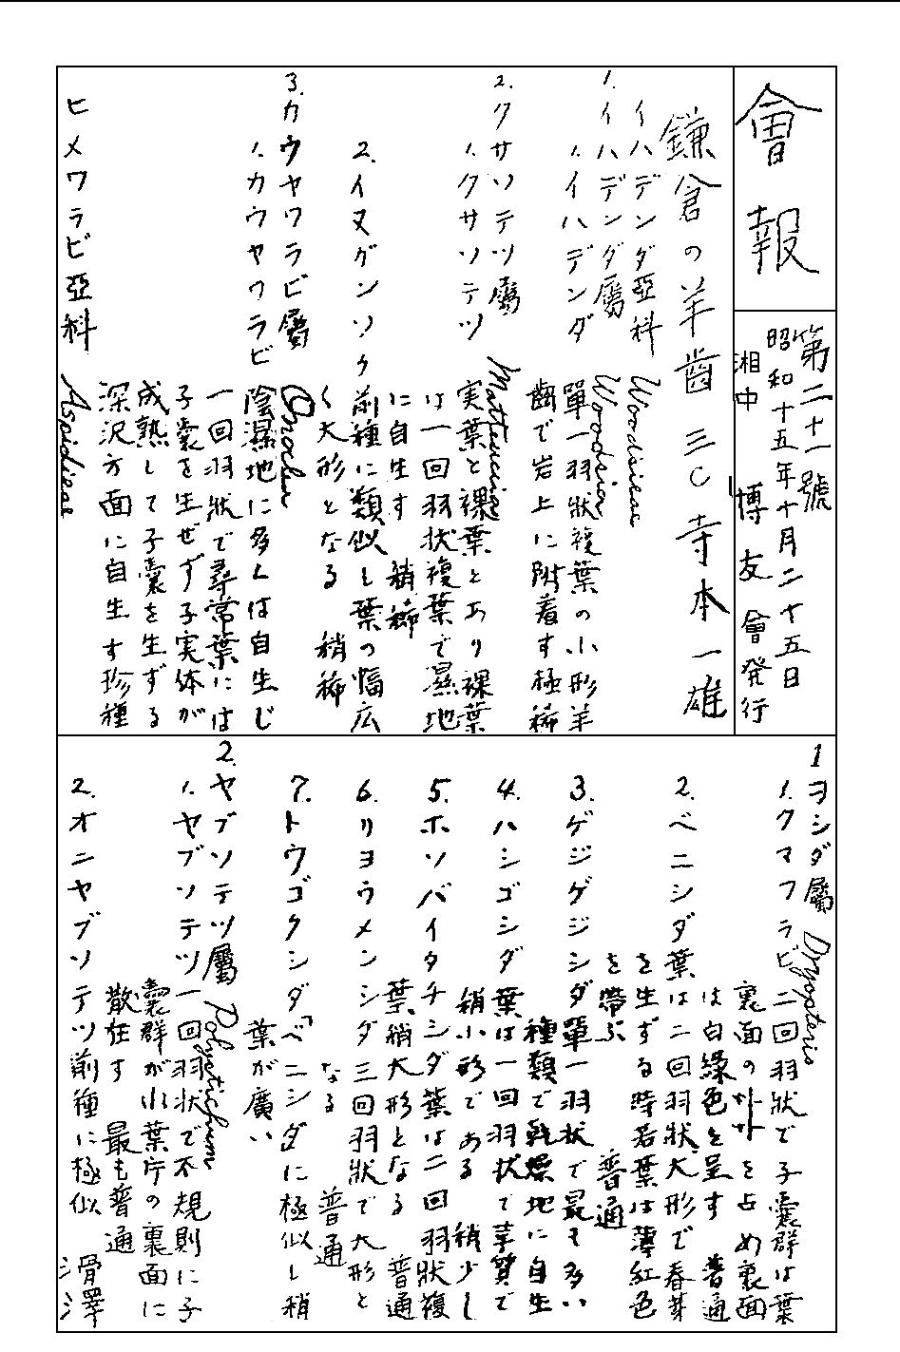 會報
第二十一號
昭和十五年十月二十五日
湘中 博友會発行
鎌倉の羊齒 三 寺本一雄
イハデンダ亞科 Woodsieae
1.イハデンダ屬 Woodsia
1.イハデンダ 單一羽狀複葉の小形羊
齒で岩上に附着す極稀
2.クサソテツ屬 Matteuccia
1.クサソテツ 実葉と裸葉とあり裸葉
は一回羽状複葉で濕地
に自生す 稍稀
2.イヌガンソク 前種に類似し葉の幅広
く大形となる 稍稀
3.カウヤワラビ屬 Onoclea
1.カウヤワラビ 陰濕地に多くは自生し
一回羽狀で尋常葉には
子嚢を生ぜず子実体が
成熟して子嚢を生ずる
深沢方面に自生す珍種
ヒメワラビ亞科 Aspidieae
1 ヲシダ屬 Dryopteris
1.クマワラビ 二回羽狀で子嚢群は葉
裏面の外を占め裏面
は白緑色を呈す 普通
2.ベニシダ 葉は二回羽狀大形で春芽
を生ずる時若葉は薄紅色
を帶ぶ 普通
3.ゲジゲジシダ 單一羽状で最も多い
種類で乾燥地に自生
4.ハシゴシダ 葉は一回羽状で草質で
稍小形である 稍少し
5.ホソバイタチシダ 葉は二回羽狀複
葉稍大形となる 普通
6.リヨウメンシダ 三回羽狀で大形と
なる 普通
7.トウゴクシダ「ベニシダ」に極似し稍
葉が廣い
2.ヤブソテツ屬 Polystichum
1.ヤブソテツ 一回羽状で不規則に子
嚢群が小葉片の裏面に
散在す 最も普通
2.オニヤブソテツ 前種に極似 滑澤